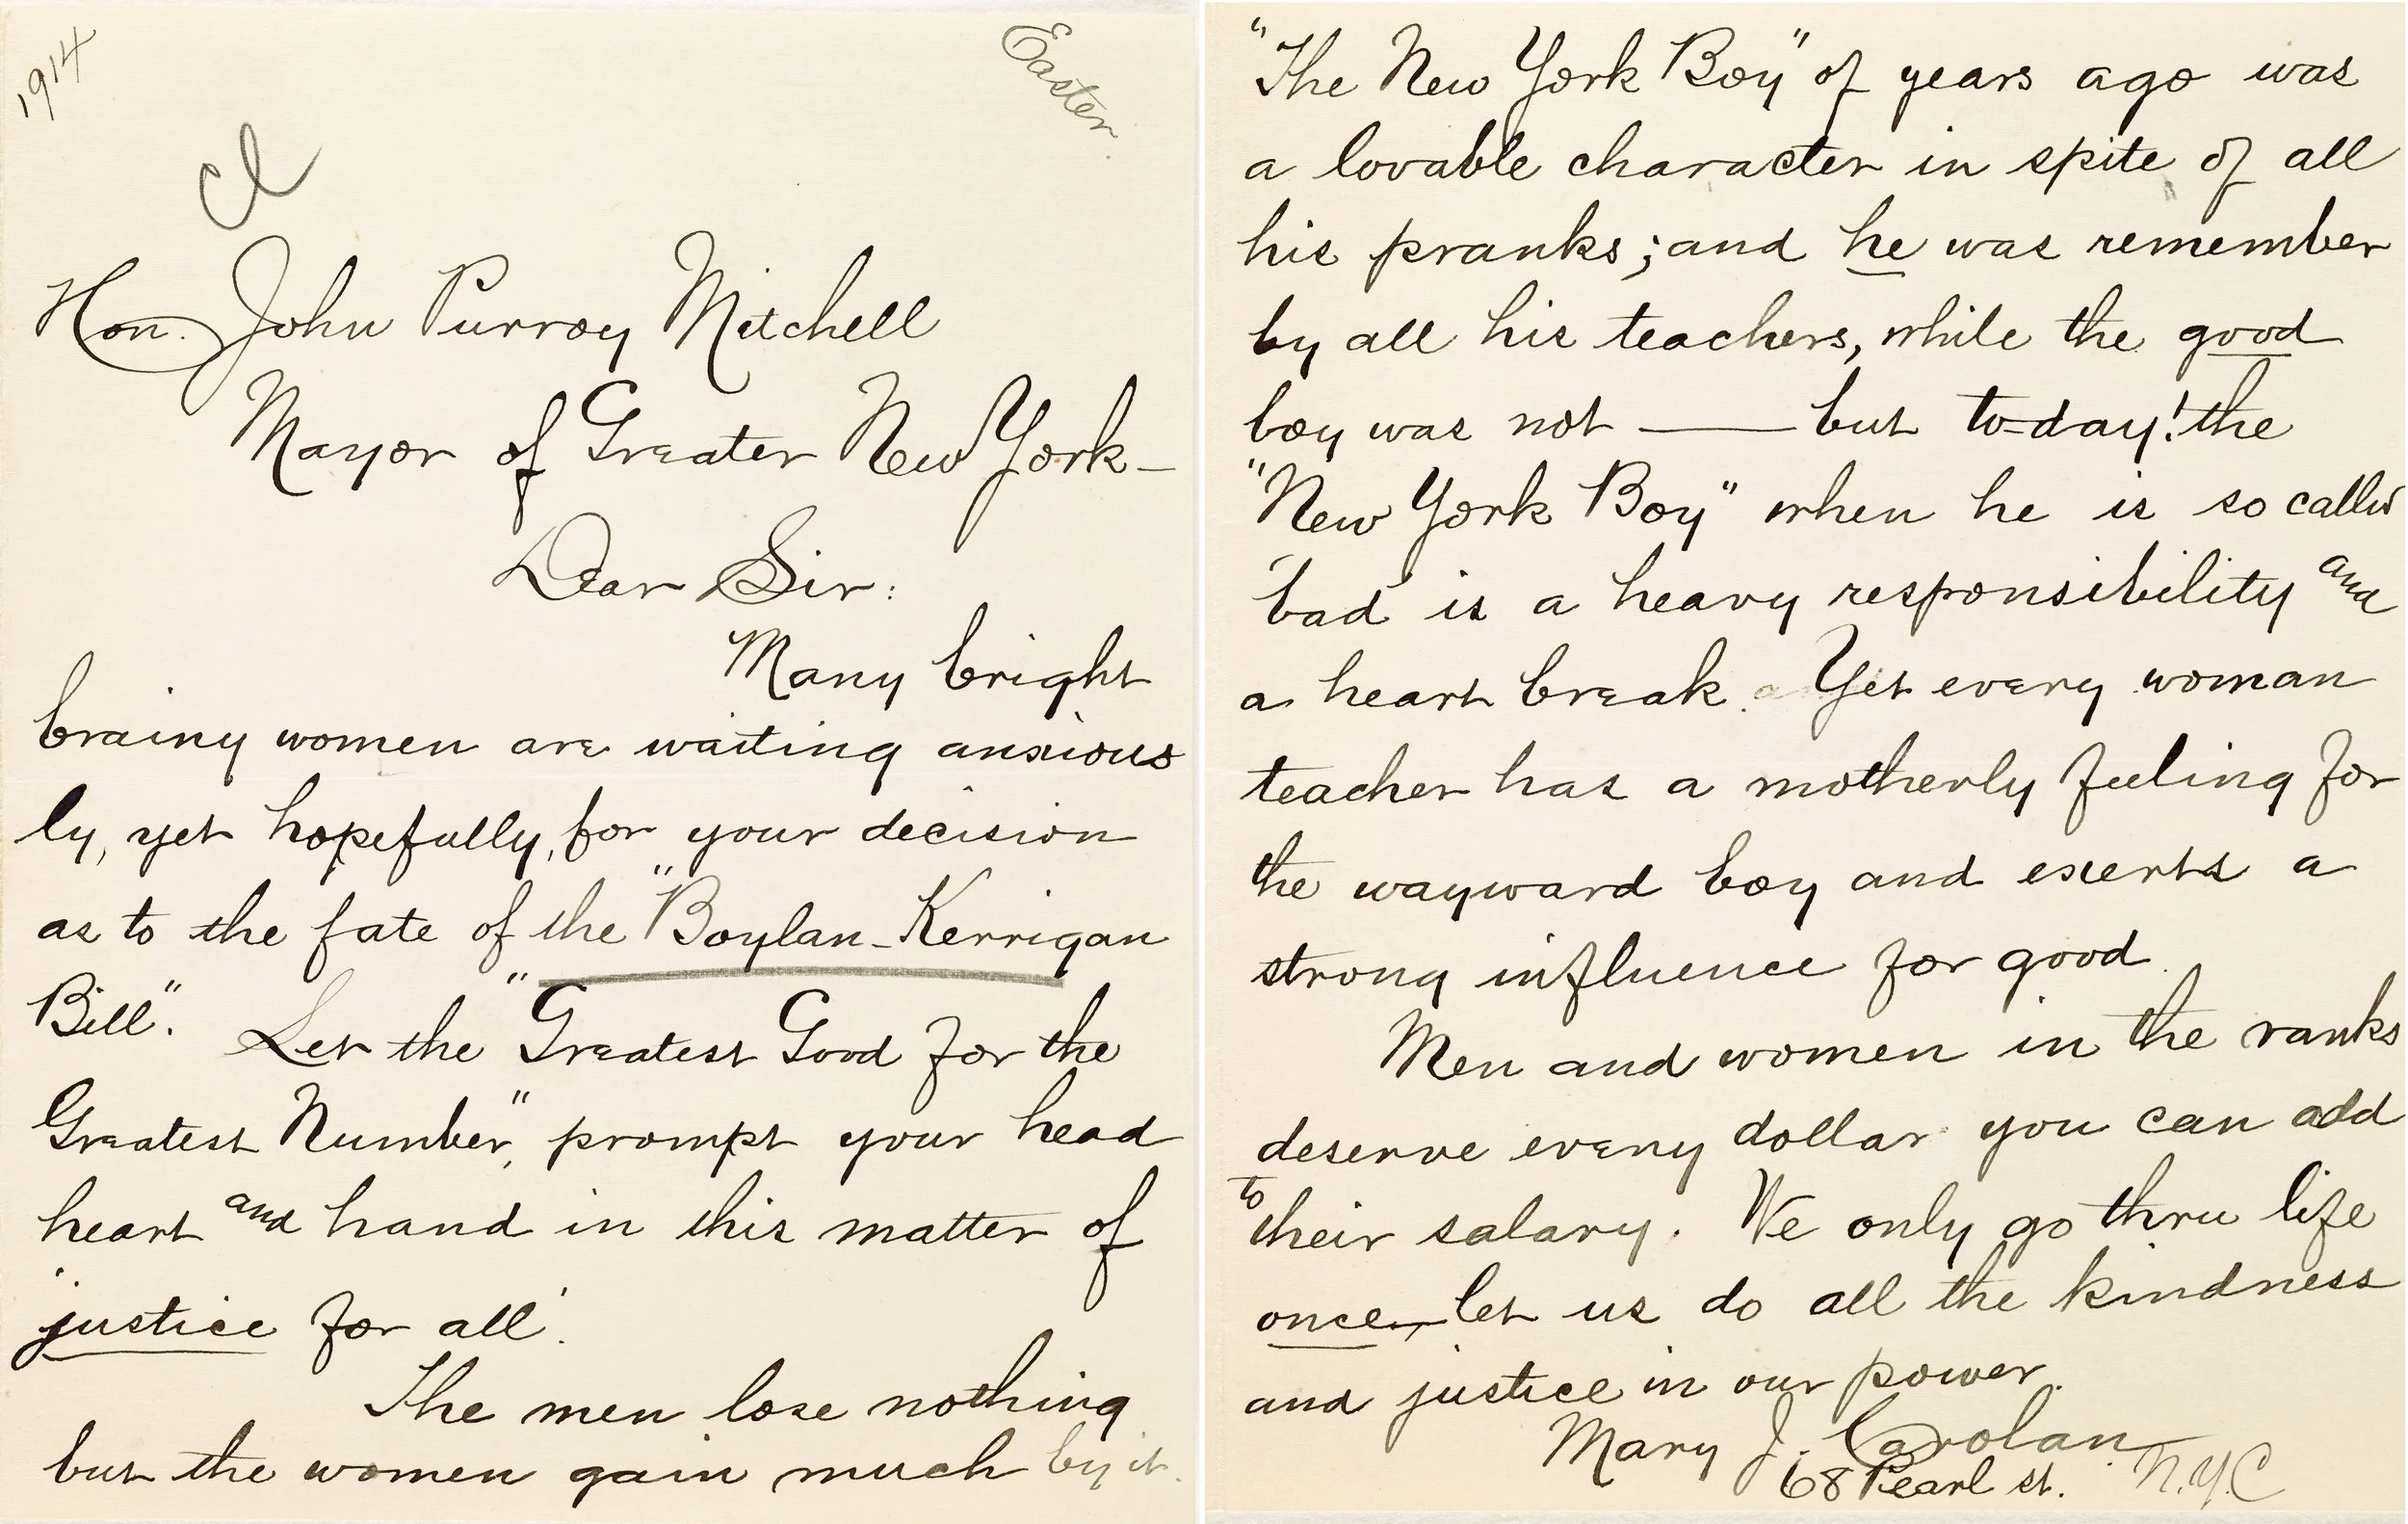 1914
Easter.
Cl
Hon. John Purroy Mitchell
Mayor of Greater New York—
Dear Sir:
Many bright
brainy women are waiting anxious
ly, yet hopefully, for your decision
as to the fate of the "Boylan-Kerrigan
Bill". Let the "Greatest Good for the
Greatest Number", prompt your head
heart and hand in this matter of
'justice for all'.
The men lose nothing
but the women gain much by it.
"The New York Boy" of years ago was
a lovable character in spite of all
his pranks; and he was remember
by all his teachers, while the good
boy was not — but to-day! the
"New York Boy" when he is so called
'bad' is a heavy responsibility and
a heart break. Yet every woman
teacher has a motherly feeling for
the wayward boy and exerts a
strong influence for good.
Men and women in the ranks
deserve every dollar you can add
to their salary. We only go thru life
once, — let us do all the kindness
and justice in our power.
Mary J. Carolan
68 Pearl st. N.Y.C